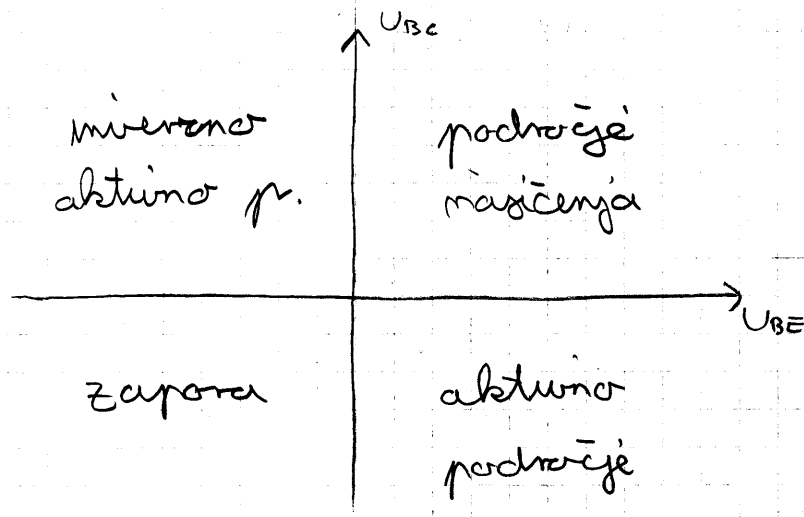 UBC
inverzno
aktivno p.
področje
nasičenja
UBE
zapora
aktivno
področje